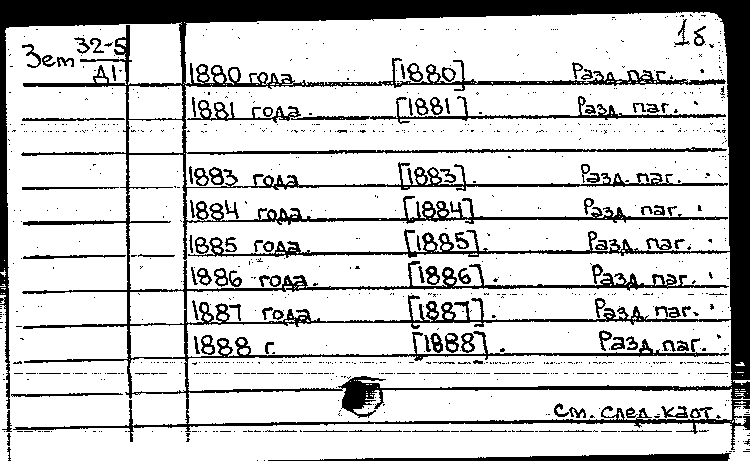 1б.
Зет 32-5
Д1
1880 года [1880] Разд. паг.
1881 года. [1881]. Разд. паг.
1883 года [1883]. Разд. паг.
1884 года. [1884] Разд. паг.
1885 года. [1885]. Разд. паг.
1886 года. [1886]. Разд. паг.
1887 года. [1887]. Разд. паг.
1888 г. [1888]. Разд. паг.
см. след. карт.